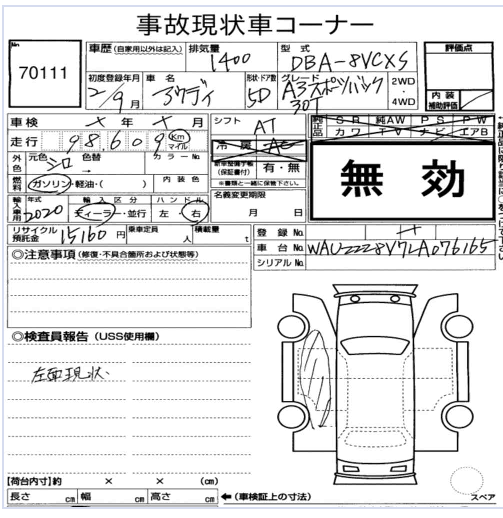 事故現状車コーナー
No
70111
車歴 (自家用以外は記入) 排気量 1400 型式 DBA-8VCXS
評価点
初度登録年月 2/9月 車名 アウディ 形状・ドア数 5D グレード A3スポーツバック 30T 2WD・4WD
内装補助評価
車検 年 月 シフト AT
走行 98,609 Km マイル 冷房 AC
純正品 SR 純AW PS PW
カワ TV ナビ エアB
外色 元色 シロ 色替 → カラーNo
(保証書付) 有・無
※書類と一緒に保管下さい。
無効
燃料 ガソリン・軽油・( ) 内装色
名義変更期限
月 日
輸入車用 2020 輸入区分 ディーラー・並行 ハンドル 左 右
リサイクル預託金 15160円 乗車定員 人 積載量 t
登録No.
車台No. WAUZZZ8V7LA076165
シリアルNo.
◎注意事項 (修復・不具合箇所および状態等)
◎検査員報告 (USS使用欄)
左面現状
【荷台内寸】約 × × (cm)
長さ cm 幅 cm 高さ cm ←(車検証上の寸法)
スペア